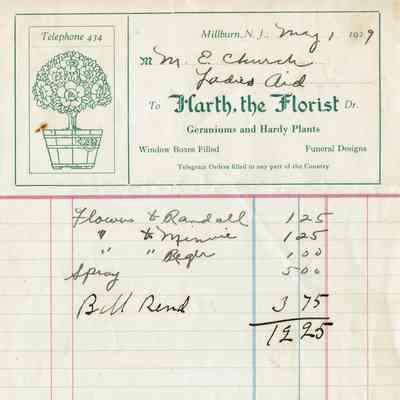 Telephone 434
Millburn, N. J., May 1 1929
M M. E. Church
Ladies Aid
To Harth, the Florist Dr.
Geraniums and Hardy Plants
Window Boxes Filled Funeral Designs
Telegram Orders filled in any part of the Country
Flowers to Randall 1 25
" to Minnie 1 25
" " 1 00
Spray 5 00
Bill Rend 3 75
12 25